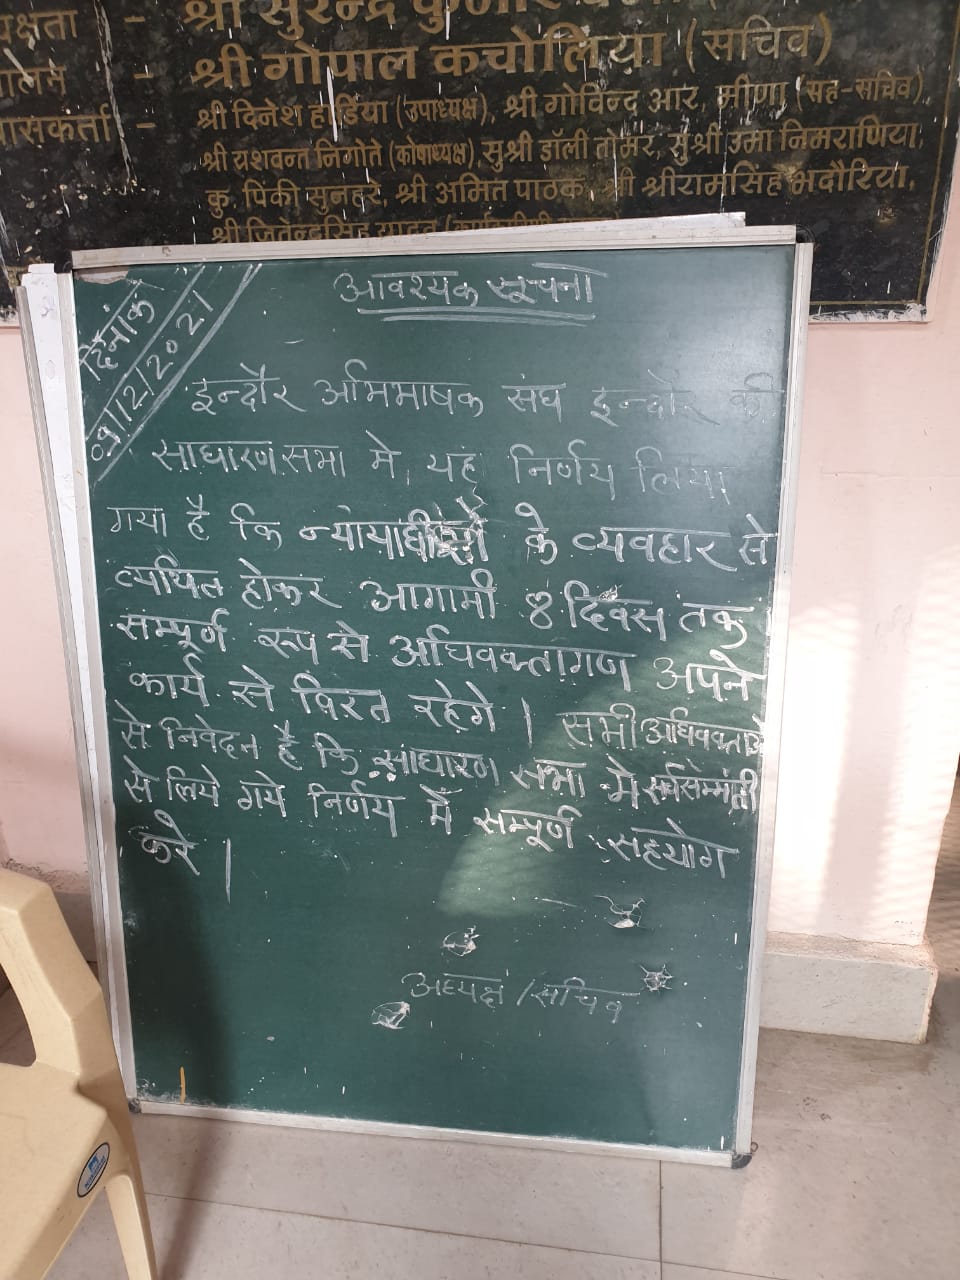 श्री सुरेन्द्र कुमार
क्षता –
श्री गोपाल कचोलिया (सचिव)
श्री दिनेश हार्डिया (उपाध्यक्ष), श्री गोविन्द आर. मीणा (सह-सचिव)
श्री यशवन्त निगोते (कोषाध्यक्ष) सुश्री डॉली तोमर, सुश्री उमा निमराणिया,
कु. पिंकी सुनहरे, श्री अमित पाठक, श्री श्रीरामसिंह भदौरिया,
श्री जितेन्द्रसिंह यादव
आवश्यक सूचना
दिनांक
09/2/2021
इन्दौर अभिभाषक संघ इन्दौर की
साधारण सभा मे, यह निर्णय लिया
गया है कि न्यायाधीशो के व्यवहार से
व्यथित होकर आगामी 8 दिवस तक
सम्पूर्ण रूप से अधिवक्तागण अपने
कार्य से विरत रहेगे । सभी अधिवक्ताओ
से निवेदन है कि साधारण सभा मे सर्वसम्मती
से लिये गये निर्णय में सम्पूर्ण सहयोग
करे ।
अध्यक्ष / सचिव